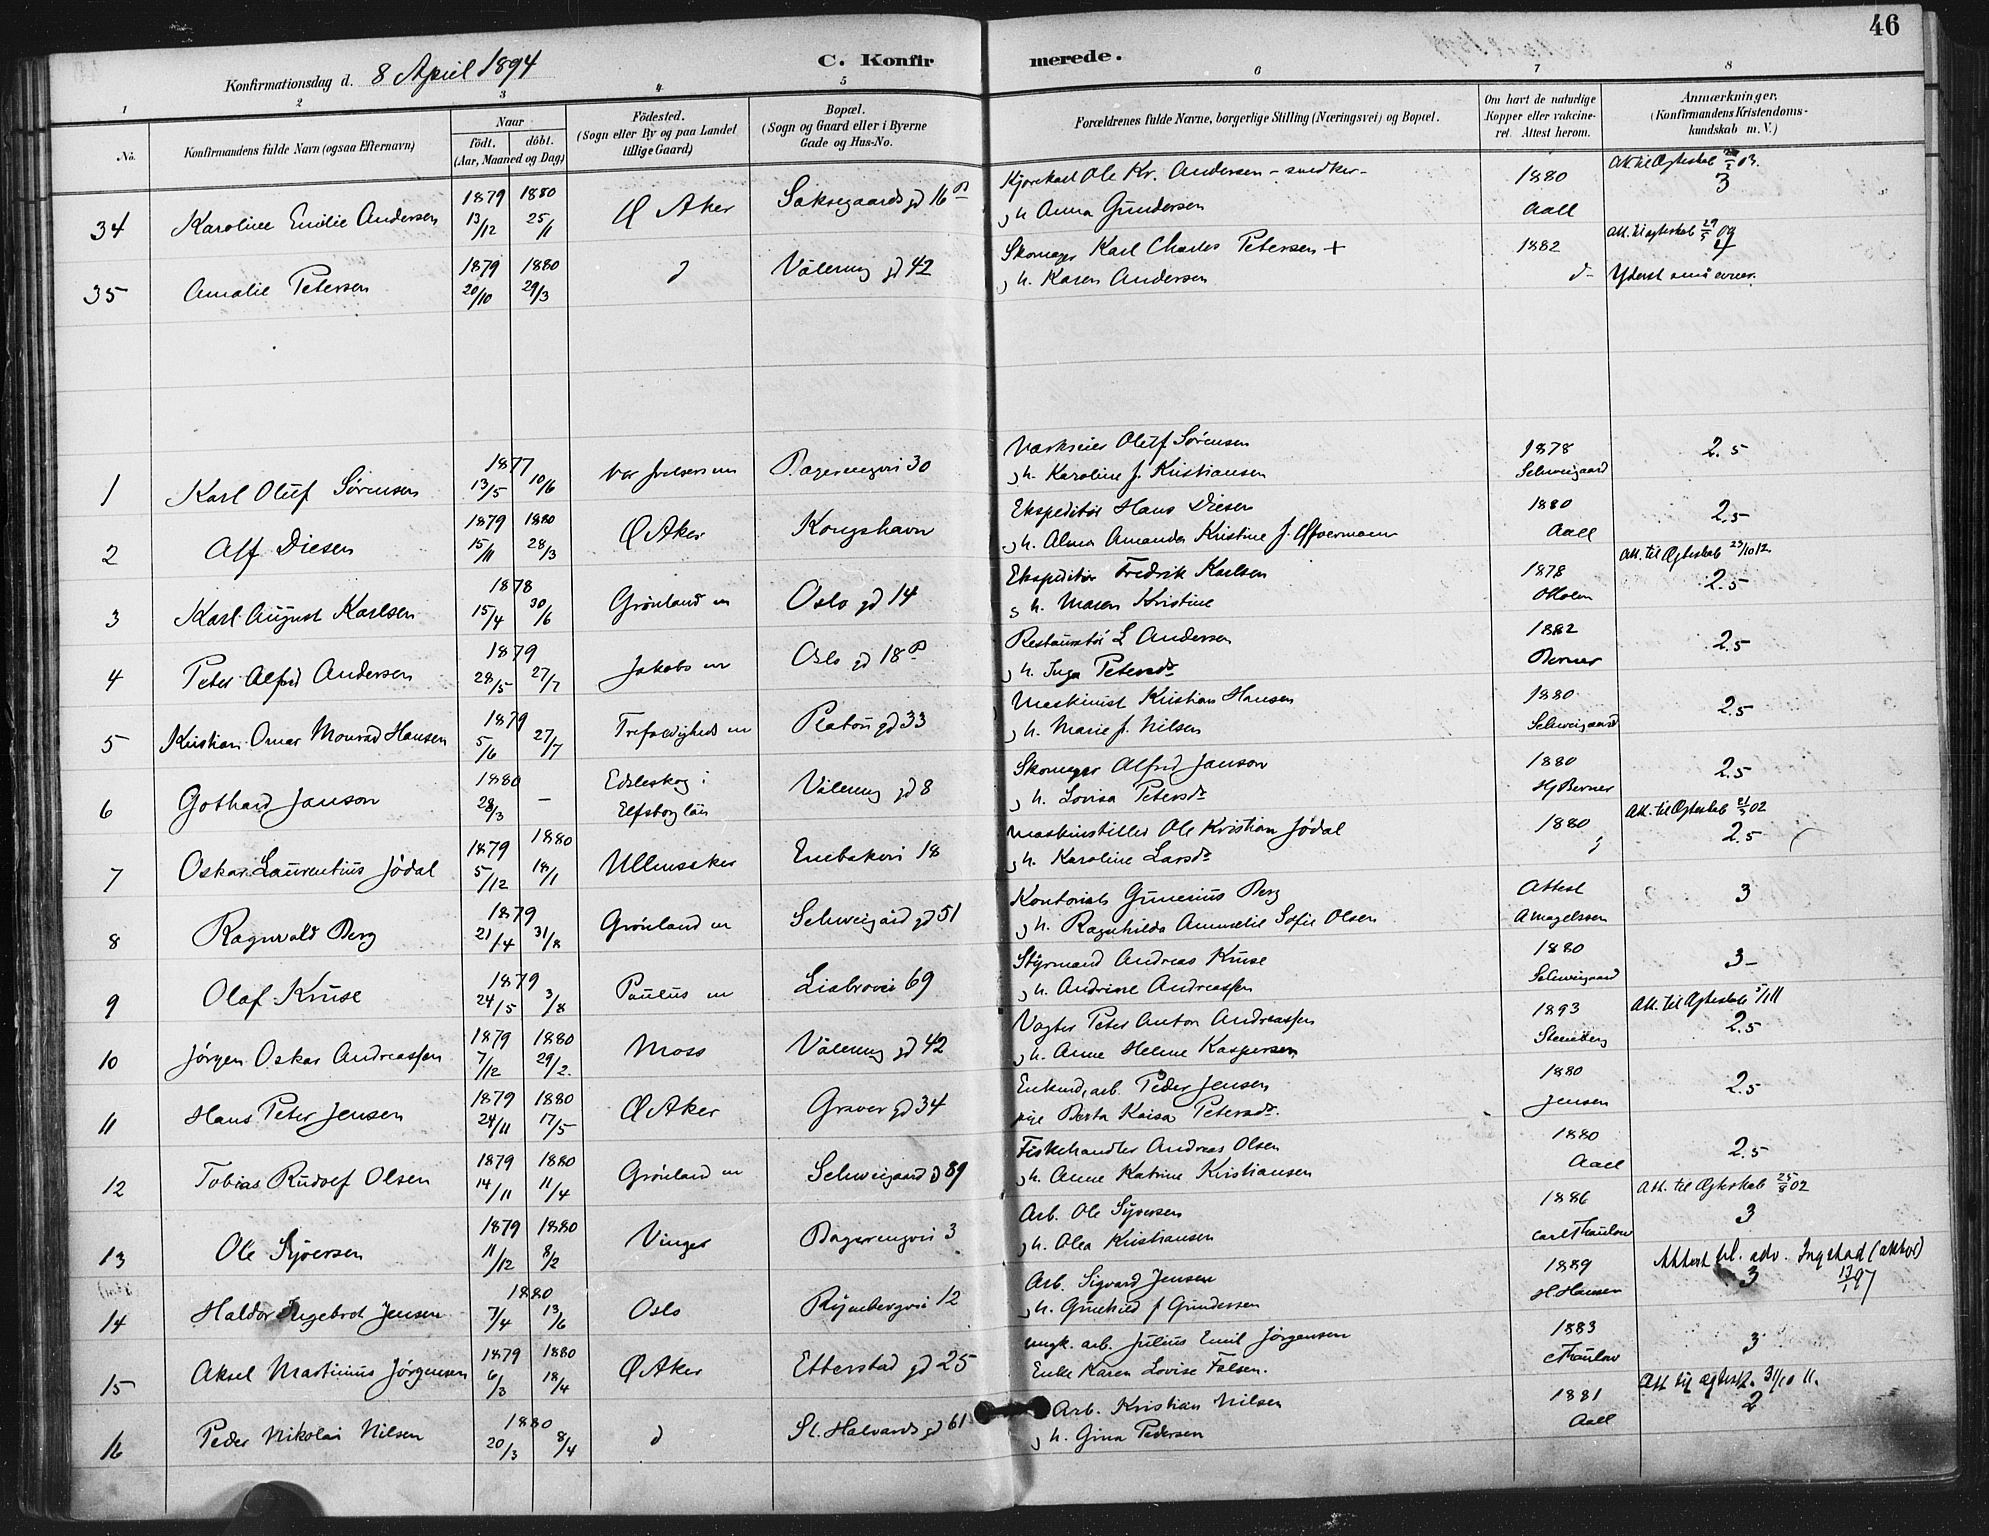 46
Konfirmationsdag d. 8 April 1894
C. Konfirmerede.
1 2 3 4 5 6 7 8
No.
Konfirmandens fulde Navn (ogsaa Efternavn)
Naar
födt. döbt.
(Aar, Maaned og Dag)
Födested.
(Sogn eller By og paa Landet tillige Gaard)
Bopæl.
(Sogn og Gaard eller i Byerne Gade og Hus-No.
Forældrenes fulde Navne, borgerlige Stilling (Næringsvei) og Bopæl.
Om havt de naturlige Kopper eller vakcineret. Attest herom.
Anmærkninger.
(Konfirmandens Kristendomskundskab m. V.)
34 Karoline Emilie Andersen 1879 13/12 1880 25/1 Ø Aker Saksegaards gd 16 Kjørekarl Ole Kr. Andersen - snedker - 1880 Att til Ægteskab 03.
h. Anna Gundersen Aall 3
35 Amalie Petersen 1879 20/10 1880 29/3 d Vålereng gd 42 Skomager Karl Charles Petersen + 1882 Att. til ægteskab 29/5 09 4
h. Karen Andersen d- Yderst små evner.
1 Karl Oluf Sørensen 1877 13/5 10/6 Bagerengvei 30 Værkseier Oluf Sørensen 1878 2.5
h. Karoline f. Kristiansen Schweigaard
2 Alf Diesen 1879 15/11 1880 28/3 Ø Aker Kongshavn Ekspeditør Hans Diesen 1880 2.5
h. Alma Amanda Kristine f. Aall
3 Karl August Karlsen 1878 15/4 30/6 Grönland m Oslo gd 14 Ekspeditør Fredrik Karlsen 1878 Att. til Ægteskab 23/10 12. 2.5
h. Maren Kristine Holm
4 Peter Alfred Andersen 1879 28/5 27/7 Jakobs m Oslo gd 18 Restauratør L Andersen 1882 2.5
h. Inga Petersdr Berner
5 Kristian Omar Monrad Hansen 1879 5/6 27/7 Trefoldigheds m Platou gd 33 Maskinist Kristian Hansen 1880 2.5
h. Marie f. Nilsen Schweigaard
6 Gothard Janson 1880 28/3 - Edsleskog i Elfsborg län Vålereng gd 8 Skomager Alfred Janson 1880 2.5
h. Lovisa Petersdr Hj Berner
7 Oskar Laurentius Jödal 1879 5/12 1880 18/1 Ullensaker Enebakvei 18 Maskinstiller Ole Kristian Jödal 1880 Att. til Ægteskab 21/3 02 2.5
h. Karoline Larsdr
8 Ragnvald Berg 1879 21/4 31/8 Grönland m Schweigård gd 51 Kontorist Gunerius Berg Attest 3
h. Ragnhilda Annmelie Sofie Olsen A Magelssen
9 Olaf Kruse 1879 24/5 3/8 Paulus m Liabrovei 69 Styrmand Andreas Kruse 1880 3-
h. Andrine Andreassen Schweigaard
10 Jørgen Oskar Andreassen 1879 7/12 1880 29/2. Moss Vålereng gd 42 Vagter Peter Anton Andreassen 1893 Att. til Ægteskab 5/1 11 2.5
h. Anne Helene Kaspersen Stenberg
11 Hans Peter Jensen 1879 24/11 1880 17/5 Ø Aker Graver gd 34 Enkemd, arb. Peder Jensen 1880 2.5
pige Berta Kaisa Petersdr. Jensen
12 Tobias Rudolf Olsen 1879 14/11 1880 11/4 Grönland m Schweigaard gd 89 Fiskehandler Andreas Olsen 1880 2.5
h. Anne Katrine Kristiansen Aall
13 Ole Syversen 1879 11/12 1880 8/2 Vinger Bagerengvei 3 Arb. Ole Syversen 1886 Att. til Ægteskab 25/8 02 3
h. Olea Kristiansen Carl Thaulow
14 Haldor Ingebrot Jensen 1880 7/4 13/6 Oslo Rymbergvei 12 Arb. Sigvard Jensen 1889 Attest til adv. Ingstad (aktor) 13/1 97 3
h. Gunhild f Gundersen H Hansen
15 Aksel Martinius Jørgensen 1879 6/3 1880 18/4 Ø Aker Etterstad gd 25 ungk. arb. Julius Emil Jørgensen 1883 3
Enke Karen Lovise Falsen. Thaulow
16 Peder Nikolai Nilsen 1880 20/3 8/4 d St. Halvards gd 61 Arb. Kristian Nilsen 1881 Att til ægtesk. 31/10 11. 2
h. Gina Pedersen Aall